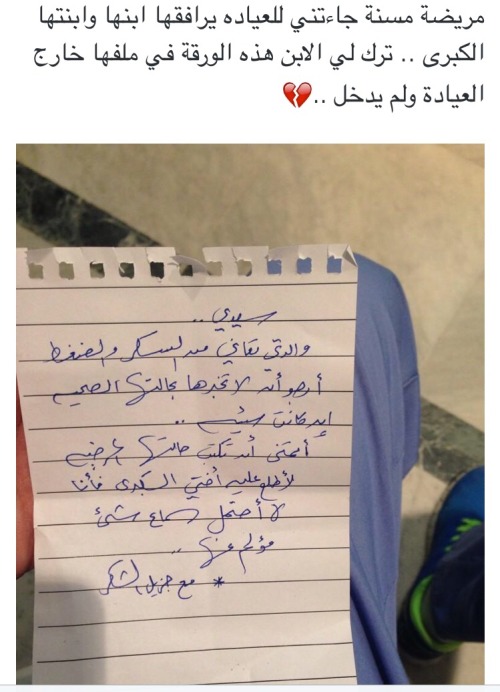 مريضة مسنة جاءتني للعياده يرافقها ابنها وابنتها
الكبرى .. ترك لي الابن هذه الورقة في ملفها خارج
العيادة ولم يدخل ..💔
سيدي ..
والدتي تعاني من السكر والضغط
أرجو أن لا تخبرها بحالتها الصحيه
إن كانت سيئه ..
أتمنى أن تكتب حالتها المرضيه
لأطلع عليه أختي الكبرى فأنا
لا أحتمل سماع شئ
مؤلم عنها ..
* مع جزيل الشكر